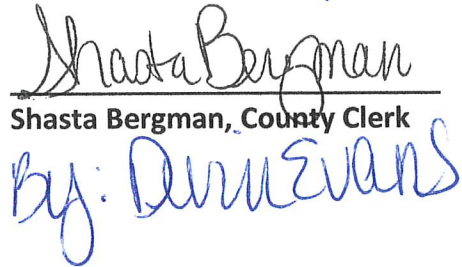 Shasta Bergman
Shasta Bergman, County Clerk
By: Devin Evans